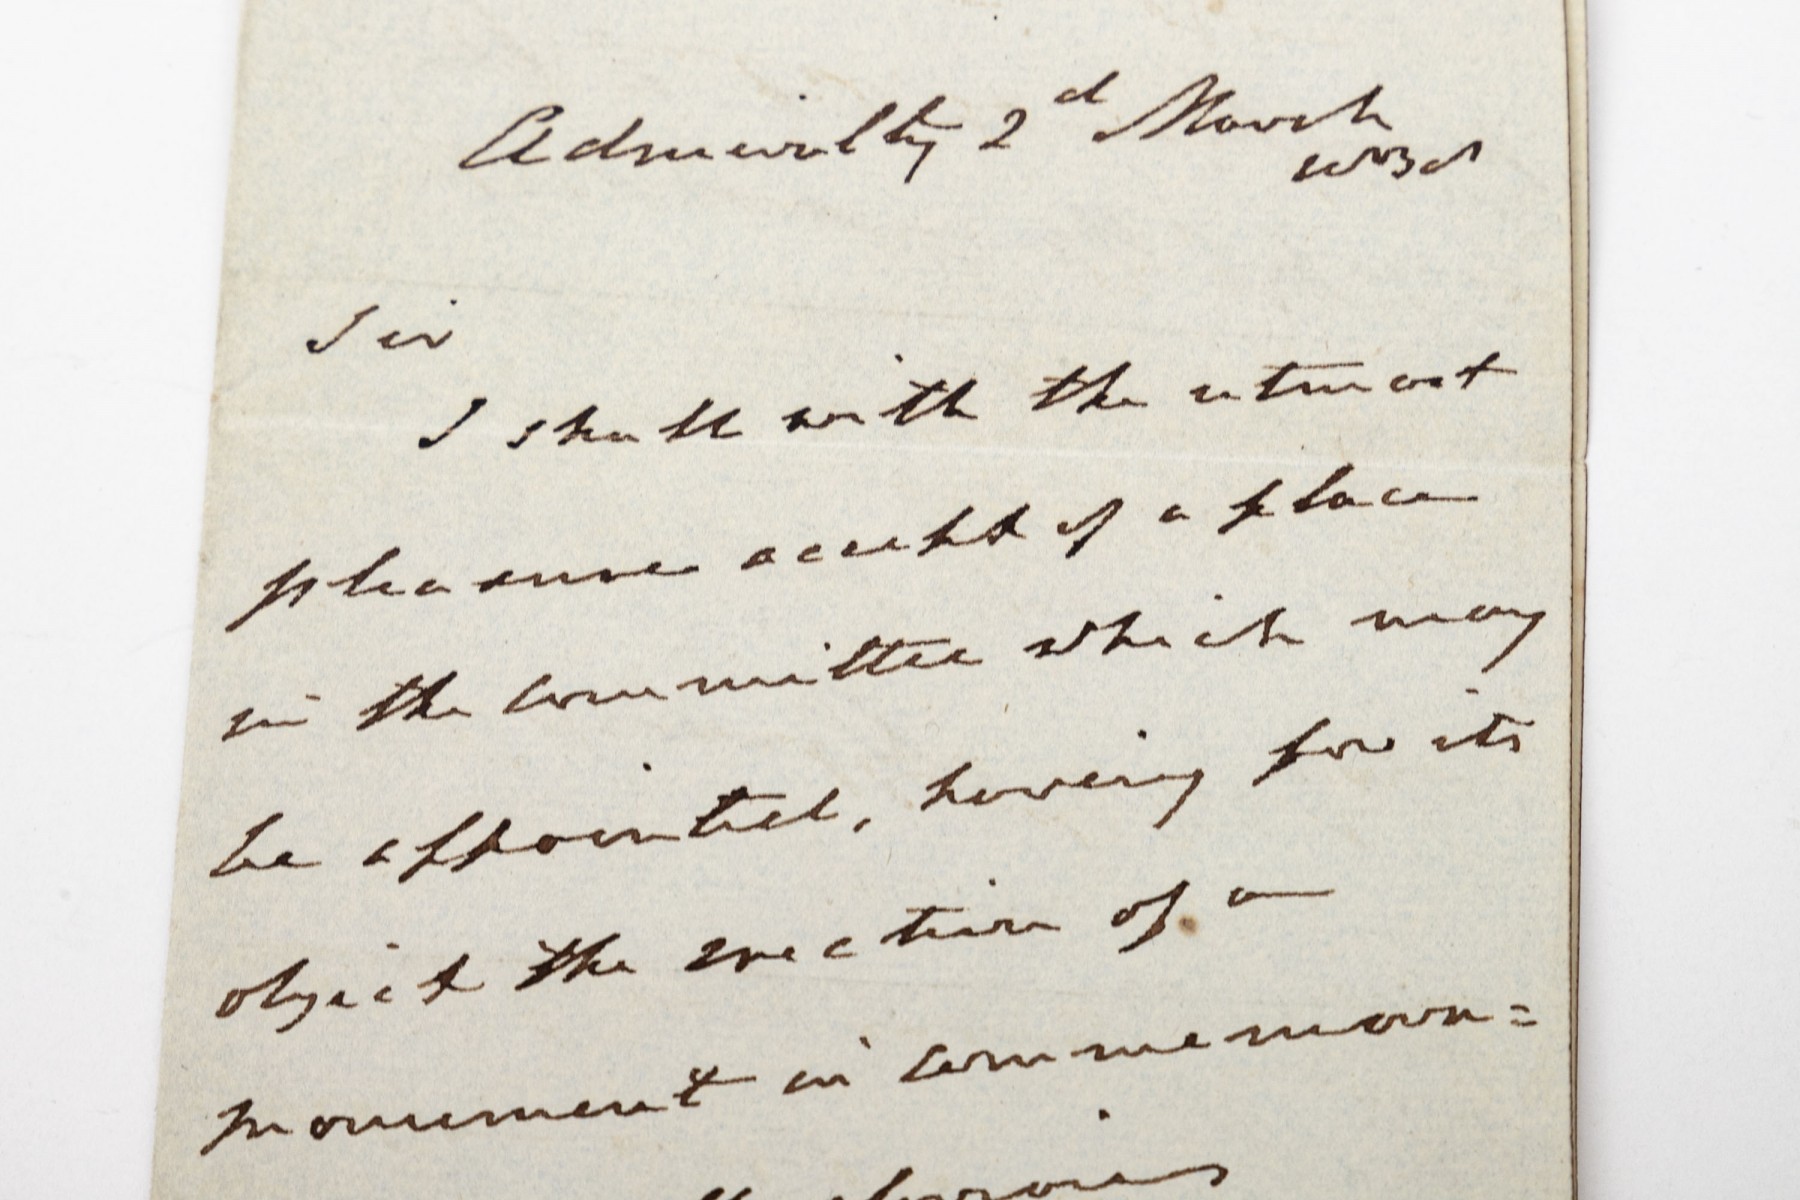 Admiralty 2d March
Sir
I shall with the utmost
pleasure accept of a place
in the committee which may
be appointed, having for its
object the erection of a
monument in commemora=
glorious